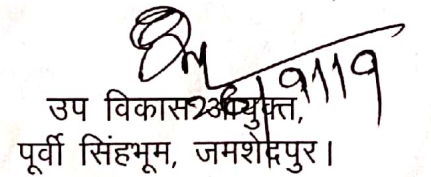 उप विकास आयुक्त,
पूर्वी सिंहभूम, जमशेदपुर।